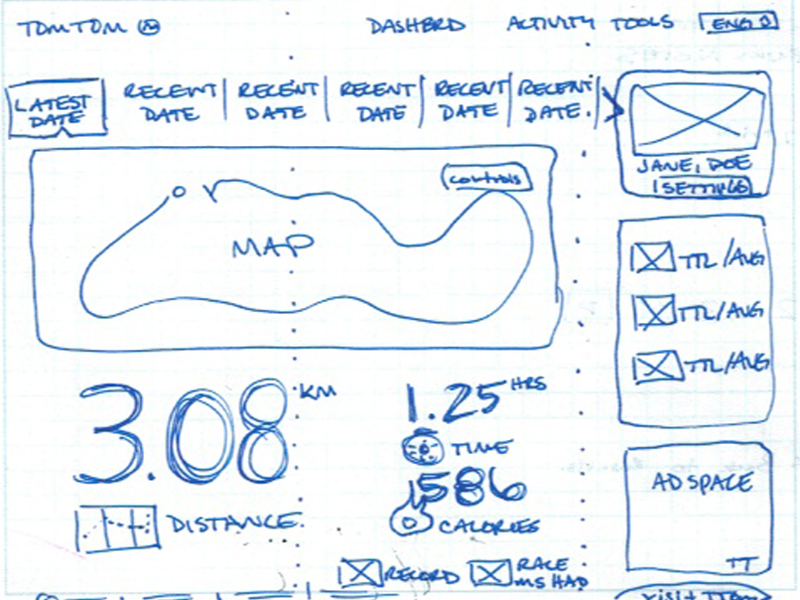 TOMTOM DASHBRD ACTIVITY TOOLS ENG
LATEST DATE
RECENT DATE
RECENT DATE
RECENT DATE
RECENT DATE
RECENT DATE.
JANE, DOE
SETTINGS
controls
MAP
TTL/AVG
TTL/AVG
TTL/AVG
3.08 KM
DISTANCE.
1.25 HRS
TIME
1586
CALORIES
AD SPACE
TT
RECORD
RACE